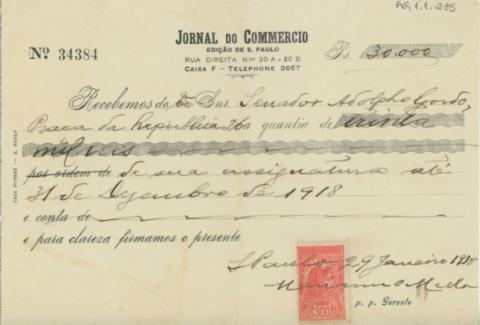 AG.1.1.295
JORNAL DO COMMERCIO
EDIÇÃO DE S. PAULO
RUA DIREITA N.os 20 A - 20 B
CAIXA F - TELEPHONE 3667
Nº 34384
Rs. 30.000
Recebemos do Snr. Senador Adolpho Gordo,
Praça da Republica 26 a quantia de trinta
mil reis
por ordem de de sua assignatura até
31 de Dezembro de 1918
e conta de
e para clareza firmamos o presente.
S Paulo 29 Janeiro 1918
p. p. Gerente
300